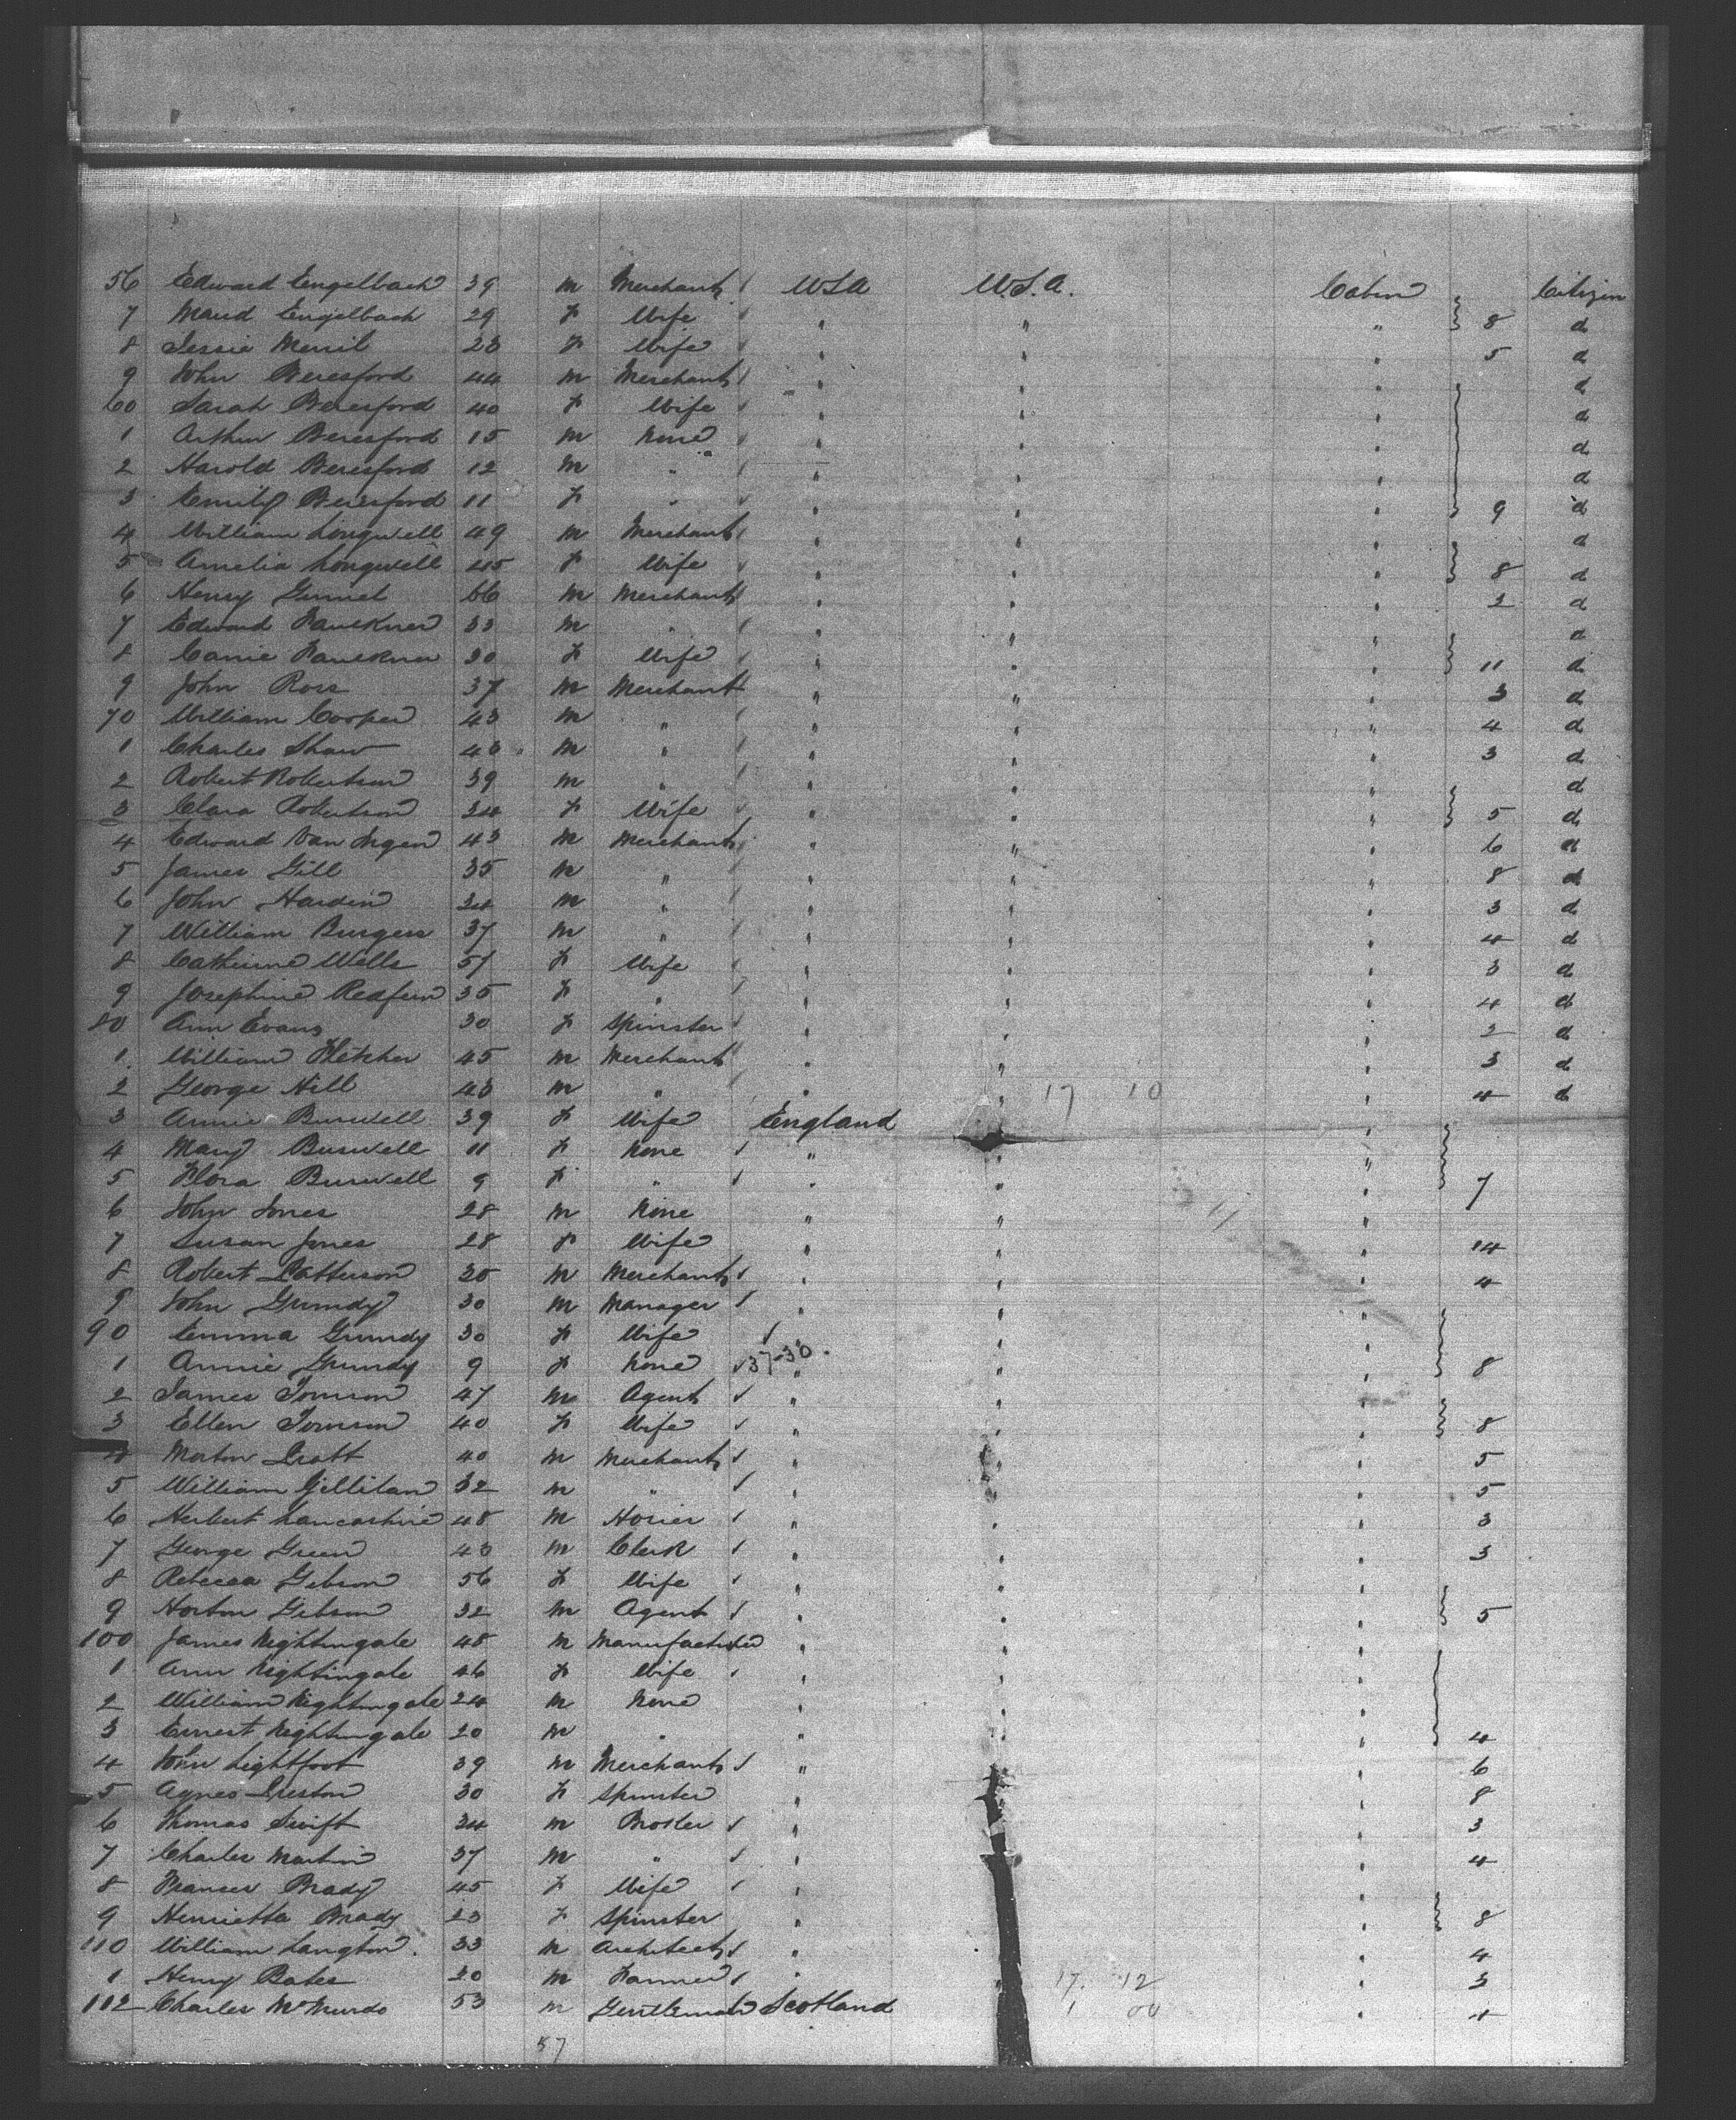 56 Edward Engelbach 39 m Merchant U S A U.S.A. Cabin Citizen
7 Maud Engelbach 29 f Wife " " " 8 d
8 Jessie Merril 28 f Wife " " " 5 d
9 John Beresford 44 m Merchant " " " d
60 Sarah Beresford 40 f Wife " " " d
1 Arthur Beresford 15 m None " " " d
2 Harold Beresford 12 m " " " " d
3 Emily Beresford 11 f " " " " 9 d
4 William Longwell 49 m Merchant " " " d
5 Amelia Longwell 45 f Wife " " " 8 d
6 Henry Gunnel 66 m Merchant " " " 2 d
7 Edward Faulkner 33 m " " " " d
8 Carrie Faulkner 30 f Wife " " " 11 d
9 John Ross 37 m Merchant " " " 3 d
70 William Cooper 43 m " " " " 4 d
1 Charles Shaw 43 m " " " " 3 d
2 Robert Robertson 39 m " " " " d
3 Clara Robertson 34 f Wife " " " 5 d
4 Edward Van Ingen 43 m Merchant " " " 6 d
5 James Gill 35 m " " " " 8 d
6 John Hardin 34 m " " " " 3 d
7 William Burgess 37 m " " " " 4 d
8 Catherine Wells 51 f Wife " " " 3 d
9 Josephine Redfern 35 f " " " " 4 d
80 Ann Evans 30 f Spinster " " " 2 d
1 William Fletcher 45 m Merchant " " " 3 d
2 George Hill 43 m " " " 17 10 " 4 d
3 Annie Burwell 39 f Wife England " "
4 Mary Burwell 11 f None " " "
5 Flora Burwell 9 f " " " " 7
6 John Jones 28 m None " " "
7 Susan Jones 28 f Wife " " " 14
8 Robert Patterson 35 m Merchant " " " 4
9 John Grundy 30 m Manager " " "
90 Emma Grundy 30 f Wife " "
1 Annie Grundy 9 f None 37-30 " " " 8
2 James Tomson 47 m Agent " " "
3 Ellen Tomson 40 f Wife " " " 8
4 Morton Pratt 40 m Merchant " " " 5
5 William Gillilan 32 m " " " " 5
6 Herbert Lancashire 48 m Hosier " " " 3
7 George Green 43 m Clerk " " " 3
8 Rebecca Gibson 56 f Wife " " "
9 Norton Gibson 32 m Agent " " " 5
100 James Nightingale 48 m Manufacturer " " "
1 Ann Nightingale 46 f Wife " " "
2 William Nightingale 24 m None " " "
3 Ernest Nightingale 20 m " " " " 4
4 John Lightfoot 39 m Merchant " " " 6
5 Agnes Preston 30 f Spinster " " 8
6 Thomas Swift 34 m Broker " " 3
7 Charles Martin 37 m " " " 4
8 Frances Brady 45 f Wife " "
9 Henrietta Brady 23 f Spinster " " 8
110 William Langton 33 m Architect " " 4
1 Henry Bates 20 m Farmer " 17. 12 " 3
112 Charles McMurdo 53 m Gentleman Scotland 1 00 " 4
57